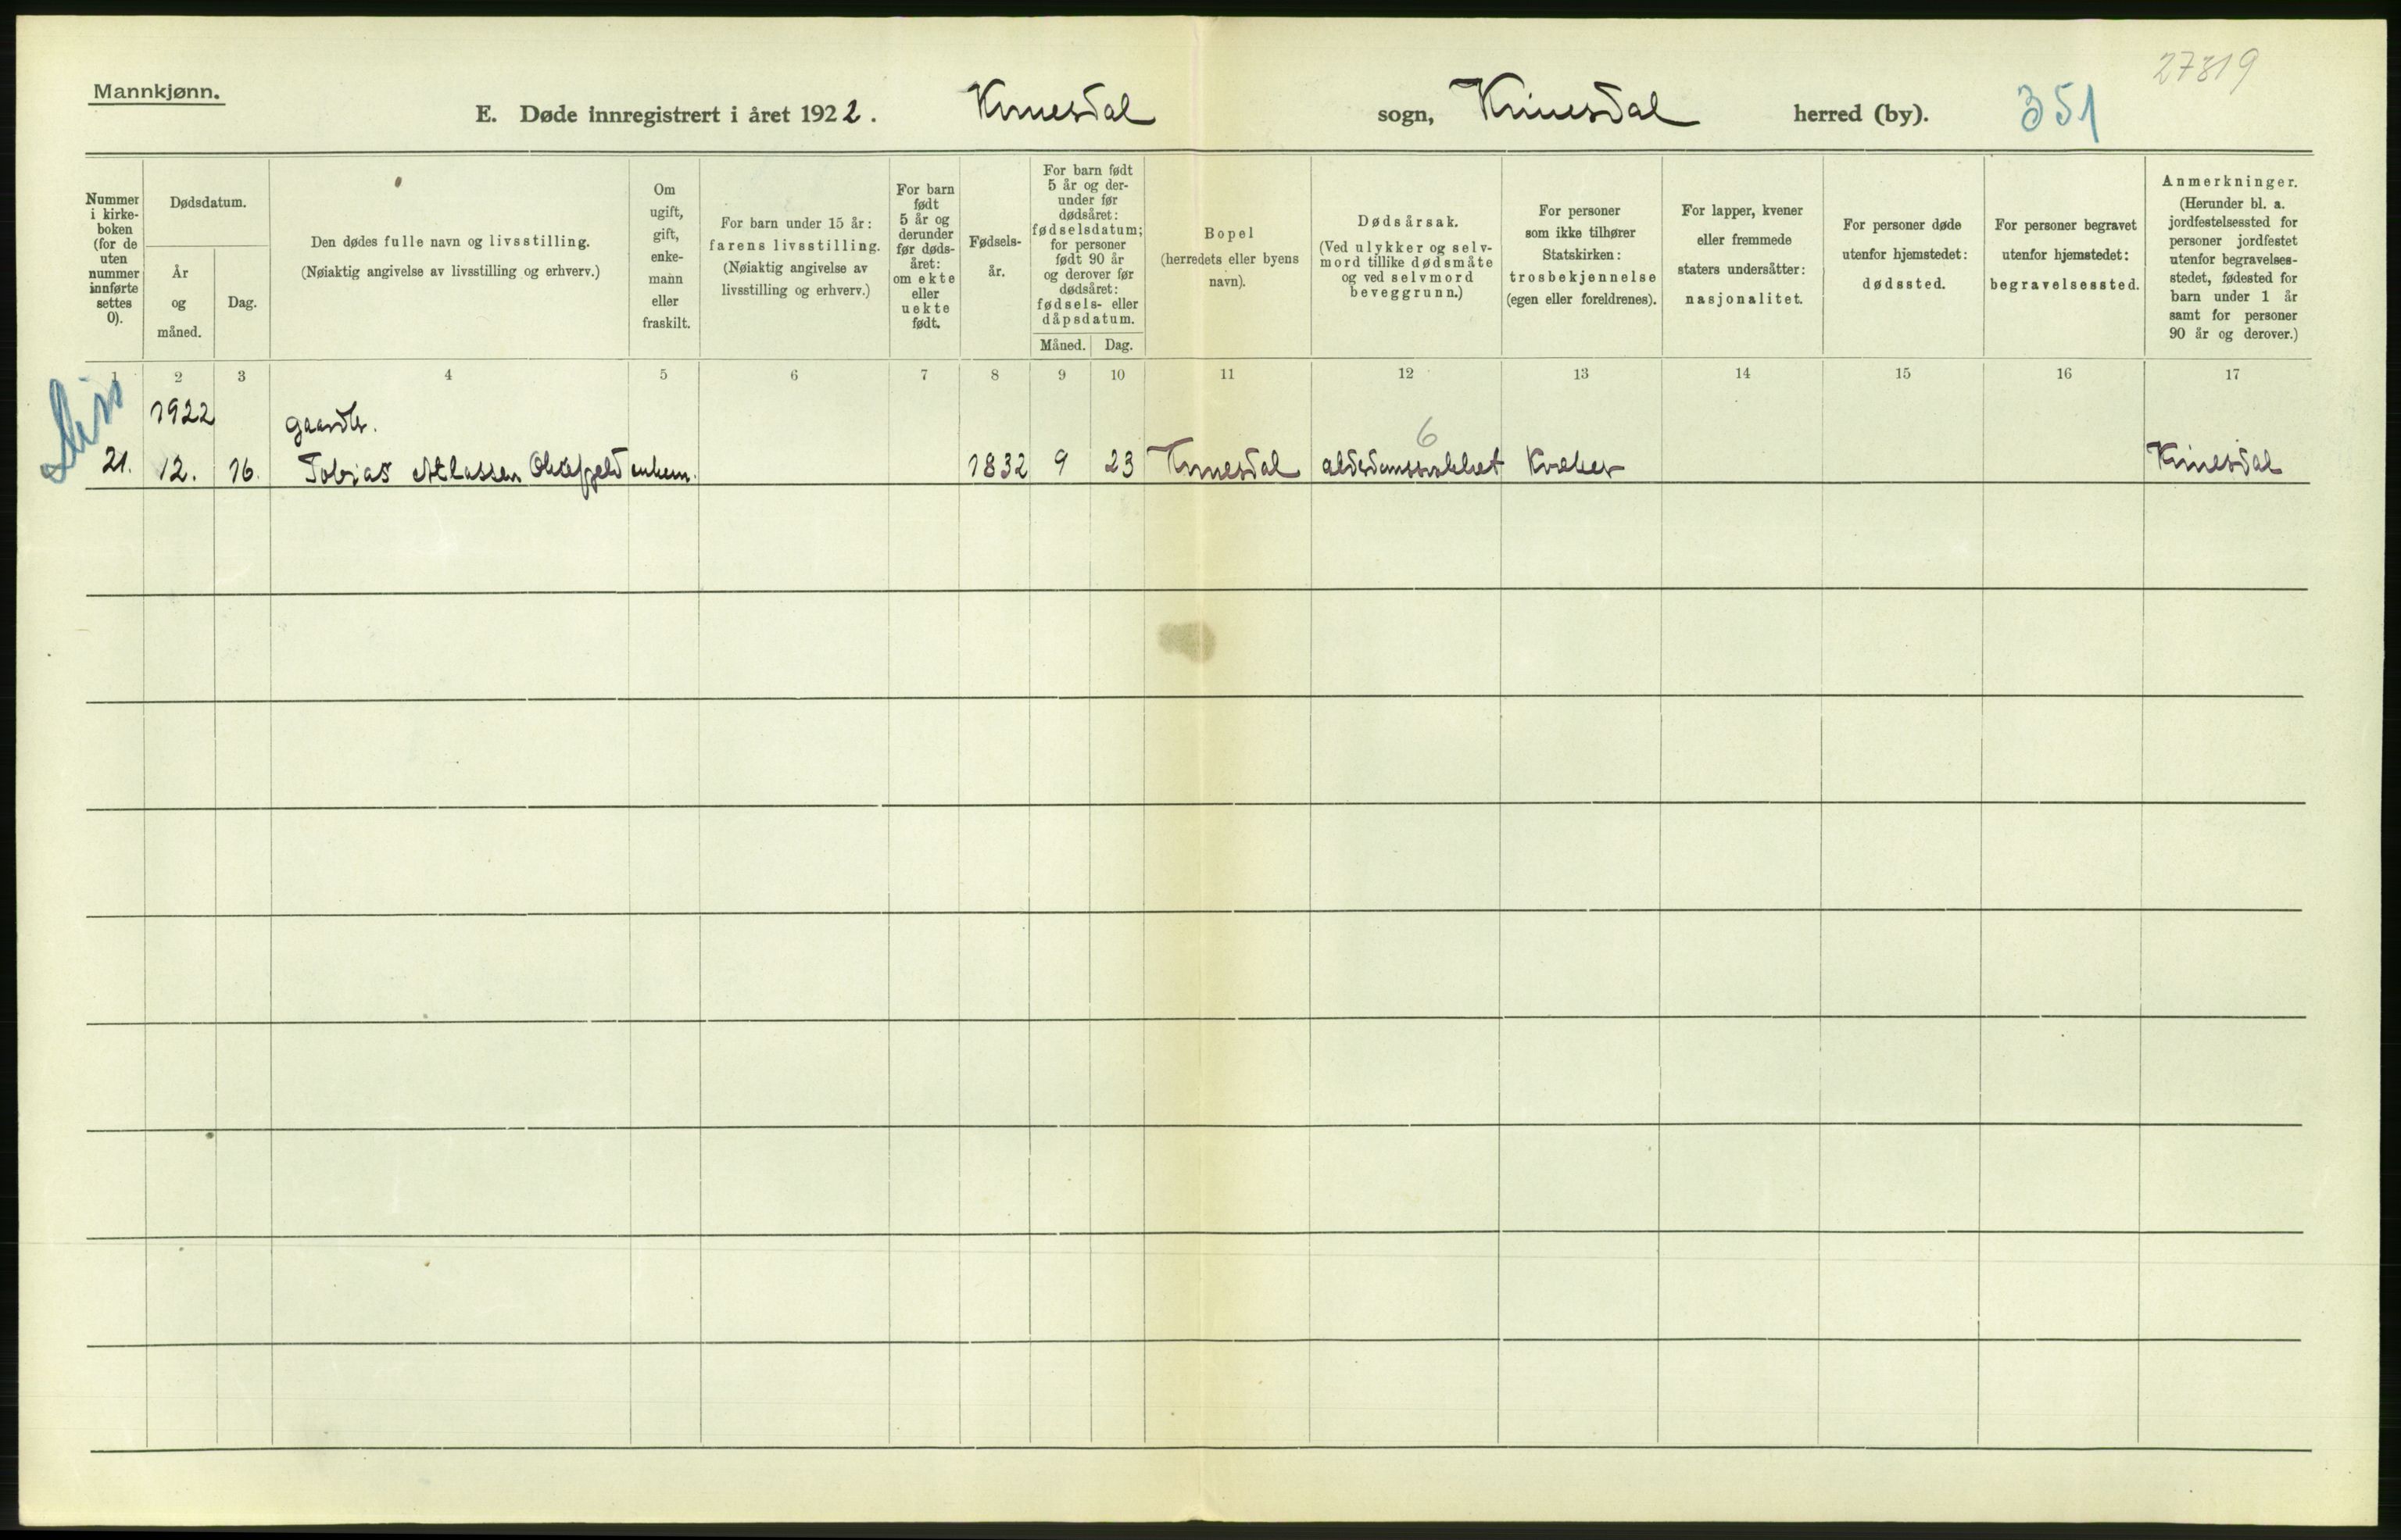 27819
Mannkjønn.
E. Døde innregistrert i året 1922. Kvinesdal sogn, Kvinesdal herred (by). 351
Nummer i kirke-boken (for de uten nummer innførte settes 0).
Dødsdatum.
År og måned.
Dag.
Den dødes fulle navn og livsstilling.
(Nøiaktig angivelse av livsstilling og erhverv.)
Om ugift, gift, enke-mann eller fraskilt.
For barn under 15 år: farens livsstilling.
(Nøiaktig angivelse av livsstilling og erhverv.)
For barn født 5 år og derunder før døds-året: om ekte eller uekte født.
Fødsels-år.
For barn født 5 år og der-under før dødsåret: fødselsdatum; for personer født 90 år og derover før dødsåret: fødsels- eller dåpsdatum.
Måned. Dag.
Bopel
(herredets eller byens navn).
Dødsårsak.
(Ved ulykker og selv-mord tillike dødsmåte og ved selvmord beveggrunn.)
For personer som ikke tilhører Statskirken: trosbekjennelse (egen eller foreldrenes).
For lapper, kvener eller fremmede staters undersåtter: nasjonalitet.
For personer døde utenfor hjemstedet: dødssted.
For personer begravet utenfor hjemstedet: begravelsessted.
Anmerkninger.
(Herunder bl. a. jordfestelsessted for personer jordfestet utenfor begravelses-stedet, fødested for barn under 1 år samt for personer 90 år og derover.)
1 2 3 4 5 6 7 8 9 10 11 12 13 14 15 16 17
1922 gaardb. 6
21. 12. 16. Tobias Atlassen enkem. 1832 9 23 Kvinesdal alderdomssvakhet Kvæker Kvinesdal